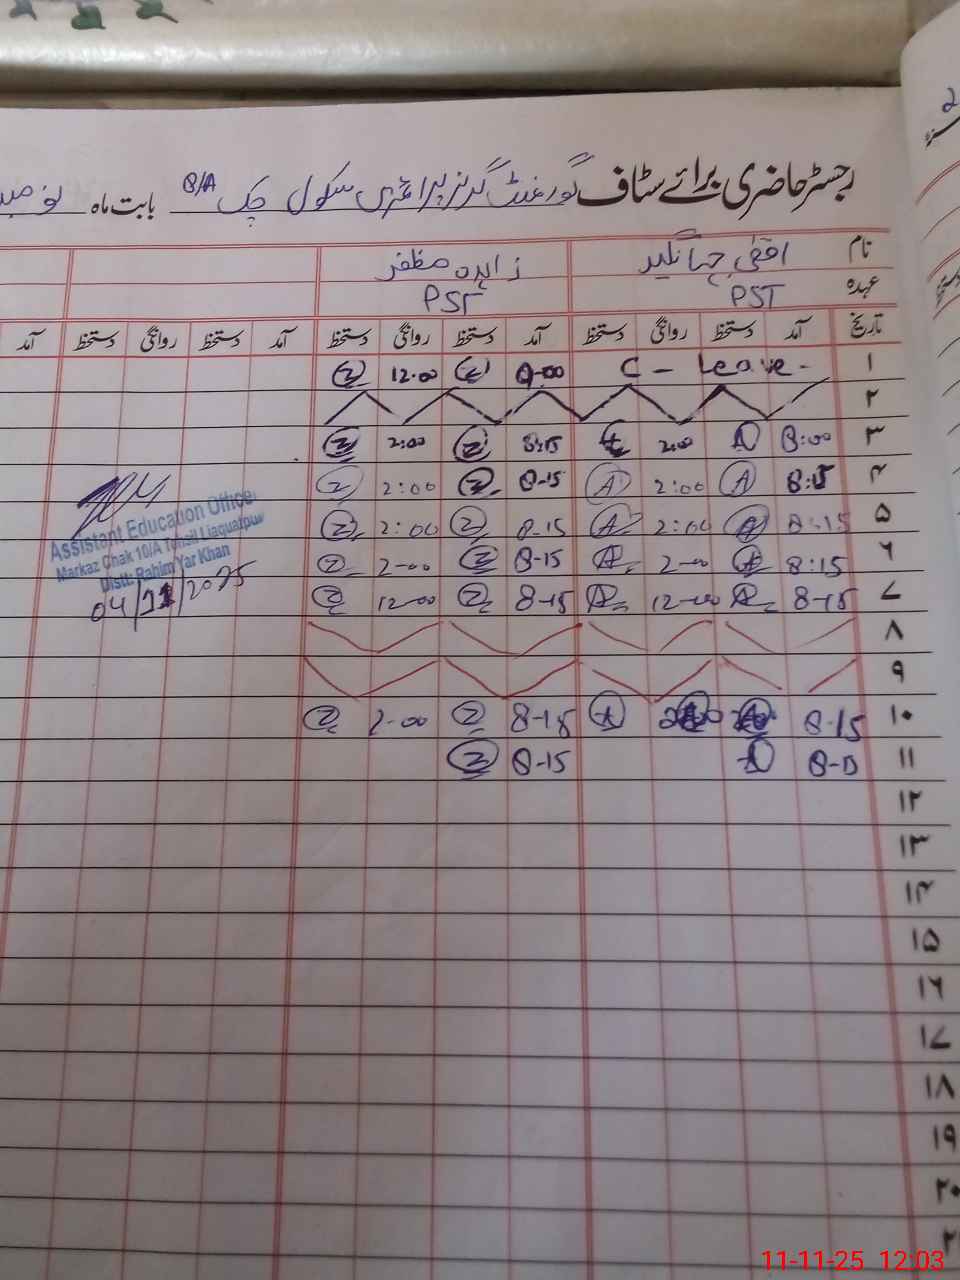 رجسٹر حاضری برائے سٹاف گورنمنٹ گرلز پرائمری سکول چک 8/A بابت ماہ
نام اقصٰی جہانگیر زاہدہ مظفر
عہدہ PST PST
تاریخ آمد دستخط روانگی دستخط آمد دستخط روانگی دستخط آمد دستخط روانگی دستخط آمد
۱ C - Leave - 9-00 12.00
۲
۳ 8:00 2:00 8:15 2:00
۴ 8:15 A 2:00 A 8-15 2:00
۵ 8:15 A 2:00 A 8-15 2:00
۶ 8:15 A 2-00 A 8-15 2-00
۷ 8-15 A 12-00 A 8-15 12-00
۸
۹
۱۰ 8-15 A 8-15 2-00
۱۱ A 8-15
۱۲
۱۳
۱۴
۱۵
۱۶
۱۷
۱۸
۱۹
۲۰
Assistant Education Officer
Markaz Chak 10/A Tehsil Liaquatpur
Distt: Rahim Yar Khan
04/11/2025
11-11-25 12:03